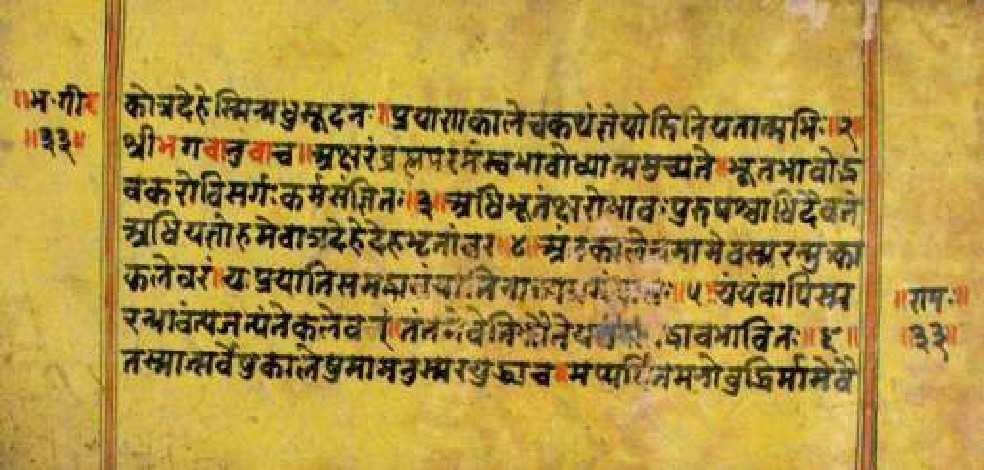 ॥भ॰गी॰
॥३३॥
कोत्रदेहेस्मिन्मधुसूदनः॥प्रयाणकालेचकथंज्ञेयोसिनियतात्मभिः॥२
श्रीभगवानुवाच॥अक्षरंब्रह्मपरमंस्वभावोध्यात्ममुच्यते॥भूतभावोद्भ
वकरोविसर्गःकर्मसंज्ञितः॥३॥अधिभूतंक्षरोभावःपुरुषश्चाधिदैवतं
अधियज्ञोहमेवात्रदेहेदेहभृतांवर॥४॥अंतकालेचमामेवस्मरन्मुक्त्वा
कलेवरं॥यःप्रयातिसमद्भावंयाति ॥५॥यंयंवापिस्मर
न्भावंत्यजत्यंतेकलेवरं॥तंतमेवैति द्भावभावितः॥६॥
तस्मात्सर्वेषुकालेषुमामनुस्मरयुद्ध्यच॥मय्यर्पितमनोबुद्धिर्मामेवै
॥राम॥
॥३३॥